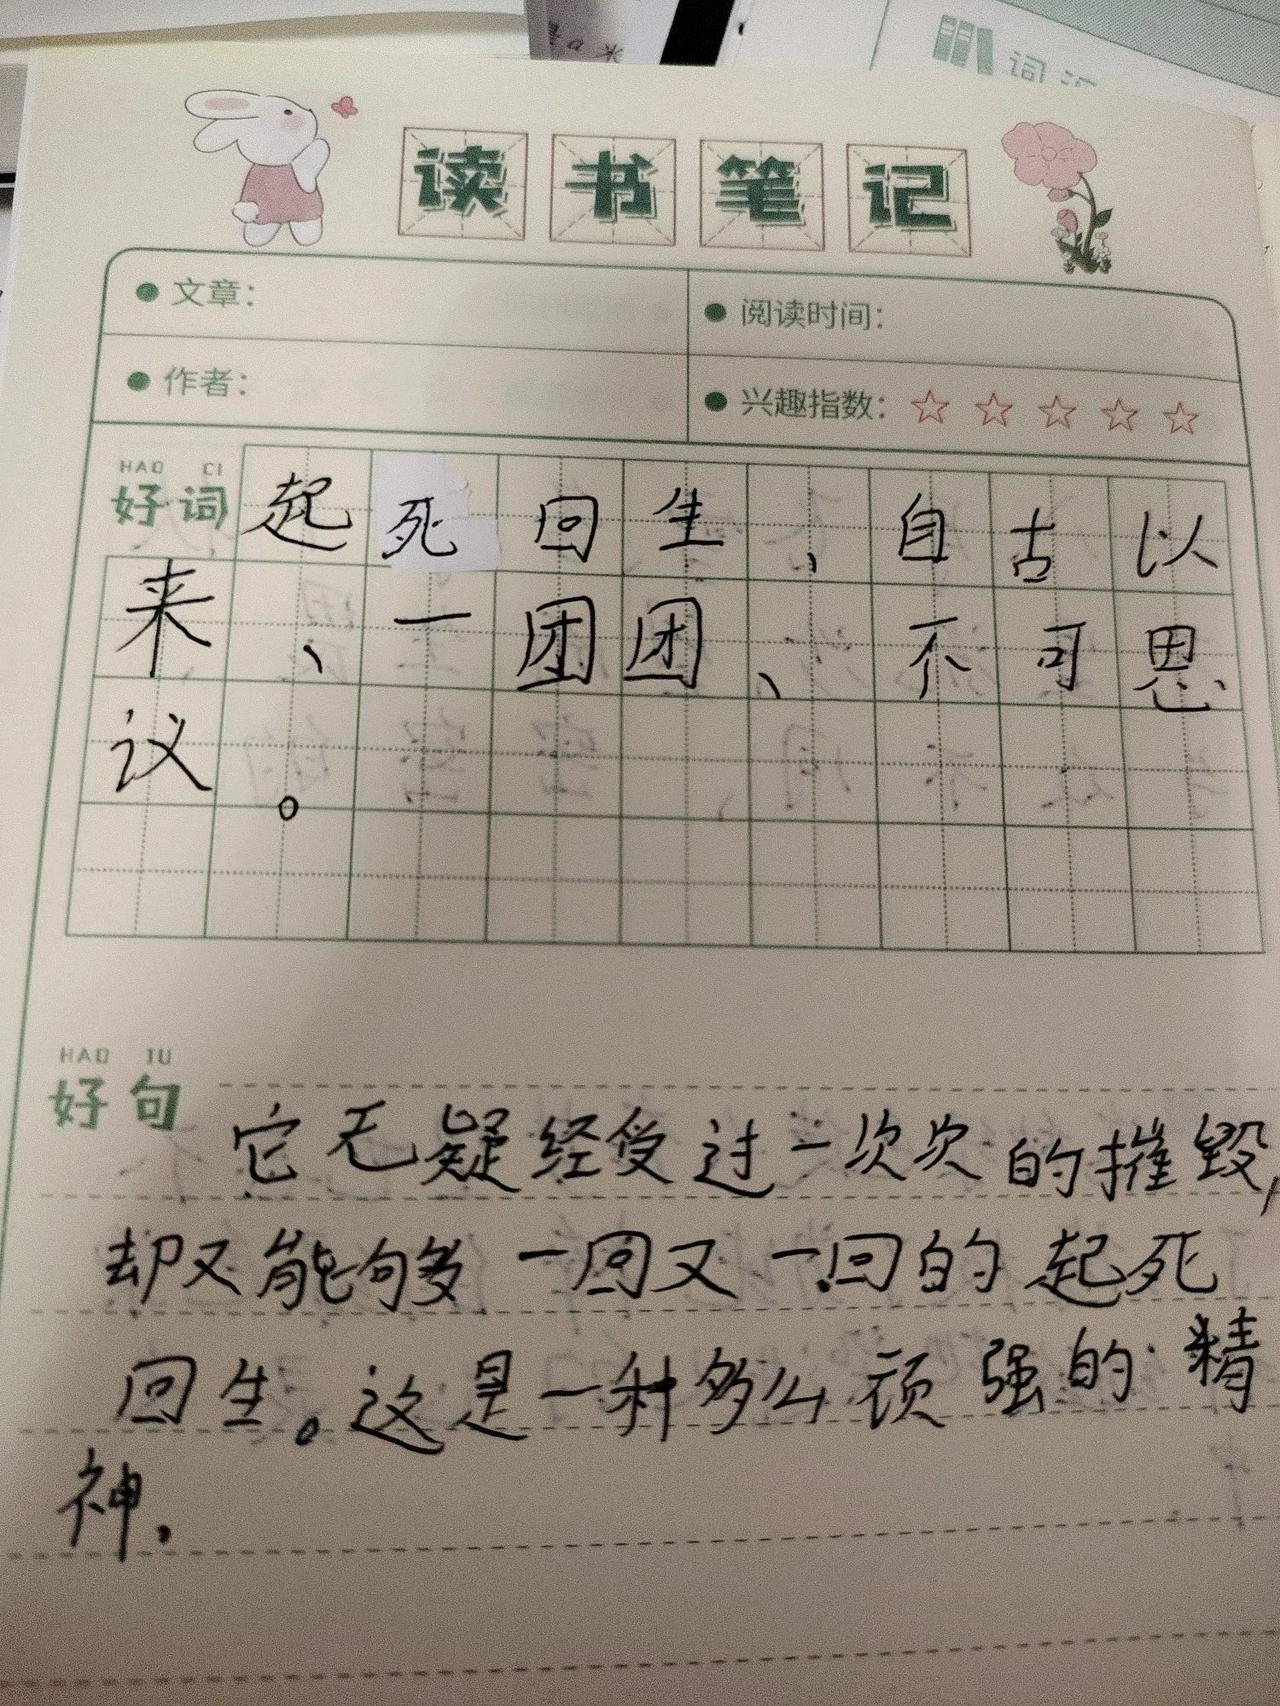 词汇
读书笔记
文章：
阅读时间：
作者：
兴趣指数：☆☆☆☆☆
HAO CI
好词 起死回生、自古以
来、一团团、不可思
议。
HAO JU
好句 它无疑经受过一次次的摧毁,
却又能够一回又一回的起死
回生。这是一种多么顽强的精
神.